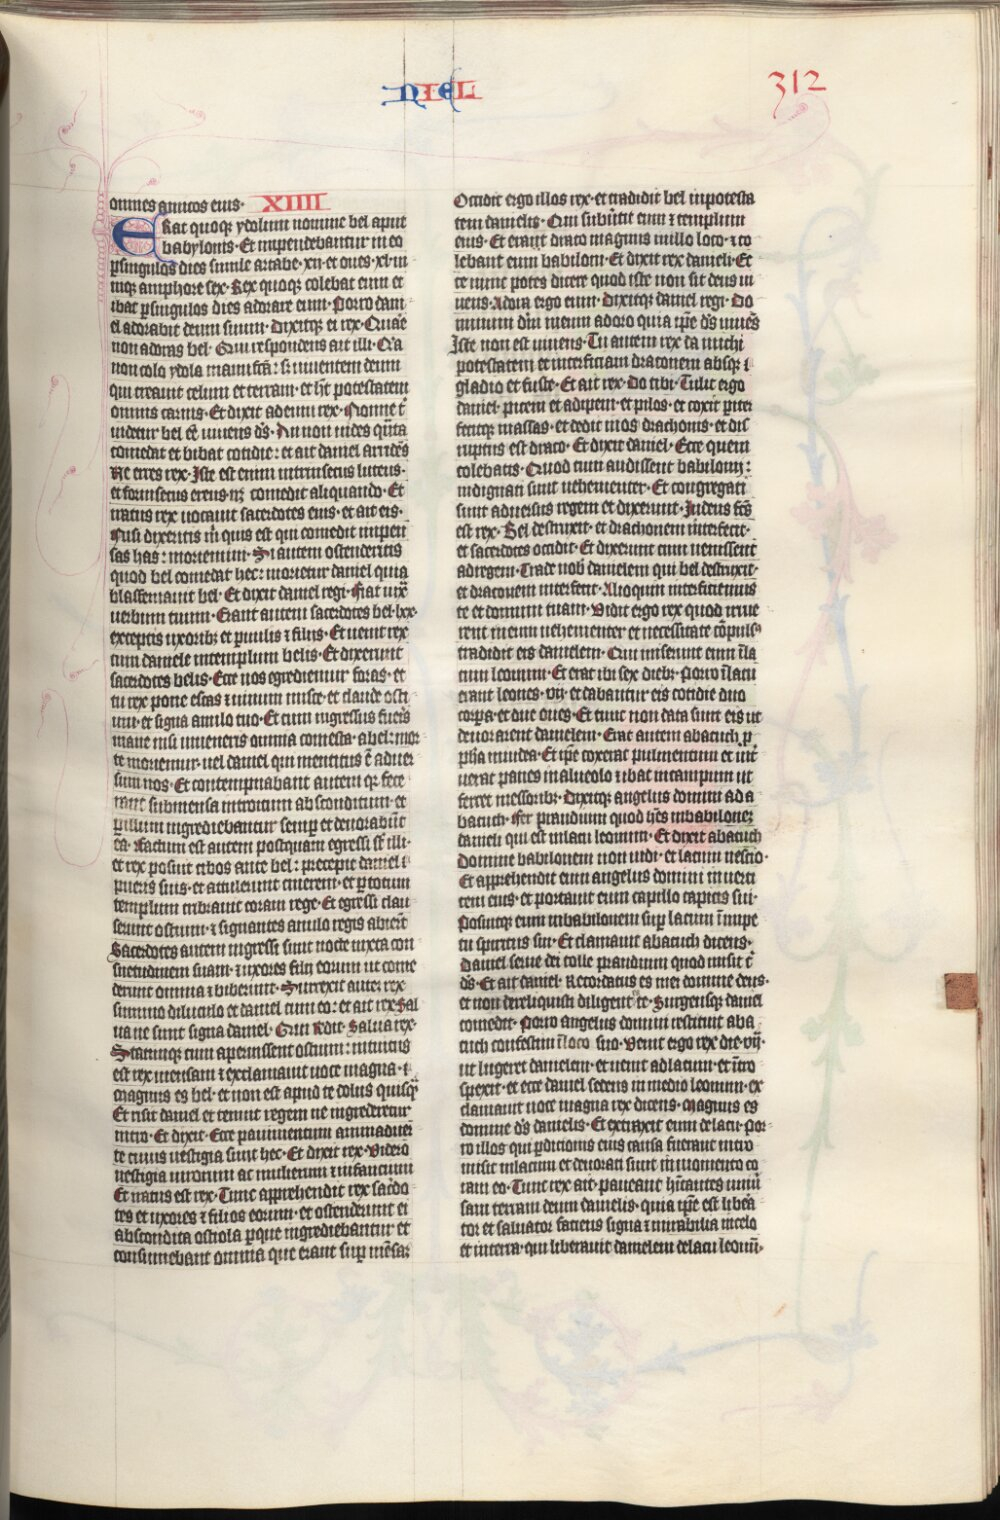 NIEL
312
omnes amicos eius· XIIII
ERat quoq; ydolum nomine bel aput
babylonis· Et inpendebantur in eo
p singulos dies simile artabe·xii·et oues·xl·ui
niq; amphore sex· Rex quoq; colebat eum et
ibat p singulos dies adorare eum· Porro dani
el adorabat deum suum· Dixitq; ei rex· Quare
non adoras bel· Qui respondens ait illi· Q'a
non colo ydola manu fca: s; viuentem deum
qui creauit celum et terram· et h't potestatem
omnis carnis· Et dixit ad eum rex· Nonne t'
videtur bel ee viuens ds· An non vides qnta
comedat et bibat cotidie: et ait daniel arrides
Ne erres rex· Iste est enim intrinsecus luteus·
et forinsecus ereus· nz comedit aliquando· Et
iratus rex vocauit sacerdotes eius· et ait eis·
Nisi dixeritis m quis est qui comedit inpen
sas has: moriemini· Si autem ostenderitis
quod bel comedat hec: morietur daniel quia
blasfemauit bel· Et dixit daniel regi· Fiat iux
verbum tuum· Erant autem sacerdotes bel·lxx·
exceptis uxorib; et paruulis ⁊ filiis· Et venit rex
cum daniele in templum belis· Et dixerunt
sacerdotes belis· Ecce nos egrediemur foras· et
tu rex pone escas ⁊ vinum misce· et claude osti
um· et signa anulo tuo· Et cum ingressus fueris
mane nisi inueneris omnia comesta· a bel: mor
te moriemur· vel daniel qui mentitus e aduer
sum nos· Et contempnabant autem qr fece
rant sub mensa introitum absconditum· et
p illum ingrediebantur semp et deuorabat
ea· Factum est autem postquam egressi st illi·
et rex posuit cibos ante bel: precepit daniel
pueris suis· et attulerunt cinerem· et p totum
templum cribrauit coram rege· Et egressi clau
serunt ostium· ⁊ signantes anulo regis abierut
Sacerdotes autem ingressi sunt nocte iuxta con
suetudinem suam· ⁊ uxores filii eorum ut come
derunt omnia ⁊ biberunt· Surrexit autez rex
summo diluculo et daniel cum eo: et ait rex Sal
ua ne sunt signa daniel· Qui Rdit· Salua rex·
Statimq; cum aperuissent ostium: intuitus
est rex mensam ⁊ exclamauit voce magna·
Magnus es bel· et non est apud te dolus quisq
Et risit daniel et tenuit regem ne ingrederetur
intro· Et dixit· Ecce pauimentum animaduer
te cuius vestigia sunt hec· Et dixit rex· Video
vestigia virorum ac mulierum ⁊ infancium
Et iratus est rex· Tunc apprehendit rex sacdo
tes et uxores ⁊ filios eorum· et ostenderunt ei
abscondita ostiola p que ingrediebantur et
consumebant omnia que erant sup mensaz
Occidit ergo illos rex· et tradidit bel in potesta
tem danielis· Qui subutit eum ⁊ templum
eius· Et erant draco magnus in illo loco· ⁊ co
lebant eum babiloni· Et dixit rex danieli· Ec
ce nunc potes dicere quod iste non sit deus vi
uens· Adora ergo eum· Dixitq; daniel regi· Do
minum dm meum adoro quia ipe ds viues
Iste non est viuens· Tu autem rex da michi
potestatem et interficiam draconem absq;
gladio et fuste· Et ait rex· Do tibi· Tulit ergo
daniel· picem et adipem· et pilos· et coxit pitr
fecitq; massas· et dedit in os drachonis· et dis
ruptus est draco· Et dixit daniel· Ecce quem
colebatis· Quod cum audissent babilonij:
indignati sunt vehementer· Et congregati
sunt aduersus regem et dixerunt· Iudeus fcs
est rex· Bel destruxit· et drachonem interfecit·
et sacerdotes occidit· Et dixerunt cum venissent
ad regem· Trade nob danielem qui bel destruxit·
et draconem interfecit· Alioquin interficiemus
te et domum tuam· Vidit ergo rex quod irrue
rent in eum vehementer et necessitate copuls9
tradidit eis danielem· Qui miserunt eum i la
cum leonum· Et erat ibi sex dieb; Porro i lacu
erant leones· vij· et dabantur eis cotidie duo
corpa· et due oues· Et tunc non data sunt eis ut
deuorarent danielem· Erat autem abacuch p
pha in iudea· Et ipe coxerat pulmentum et int'
uerat panes in alueolo ⁊ ibat in campum ut
ferret messorib;· Dixitq; angelus domini ad a
bacuch· Fer prandium quod hes in babilonez
danieli qui est in lacu leonum· Et dixit abacuch
Domine babilonem non vidi· et lacum nescio·
Et apprehendit eum angelus domini in verti
cem eius· et portauit eum capillo capitis sui·
Posuitq; eum in babilonem sup lacum i inpe
tu spiritus sui· Et clamauit abacuch dicens·
Daniel serue dei tolle prandium quod misit t'
ds· Et ait daniel· Recordatus es mei domine deus·
et non dereliquisti diligent te· Surgensq; daniel
comedit· Porro angelus domini restituit aba
cuch confestim i loco suo· Venit ergo rex die·vij·
ut lugeret danielem· et venit ad lacum· et itro
spexit· et ecce daniel sedens in medio leonum· ex
clamauit voce magna rex dicens· Magnus es
domine ds danielis· Et extraxit eum de lacu· por
ro illos qui pditionis eius causa fuerant intro
misit in lacum et deuorati sunt in momento co
ram eo· Tunc rex ait· paueant hitantes uniu
sam terram deum danielis· quia ipe est libea
tor et saluator faciens signa ⁊ mirabilia in celo
et in terra· qui liberauit danielem de lacu leonu·